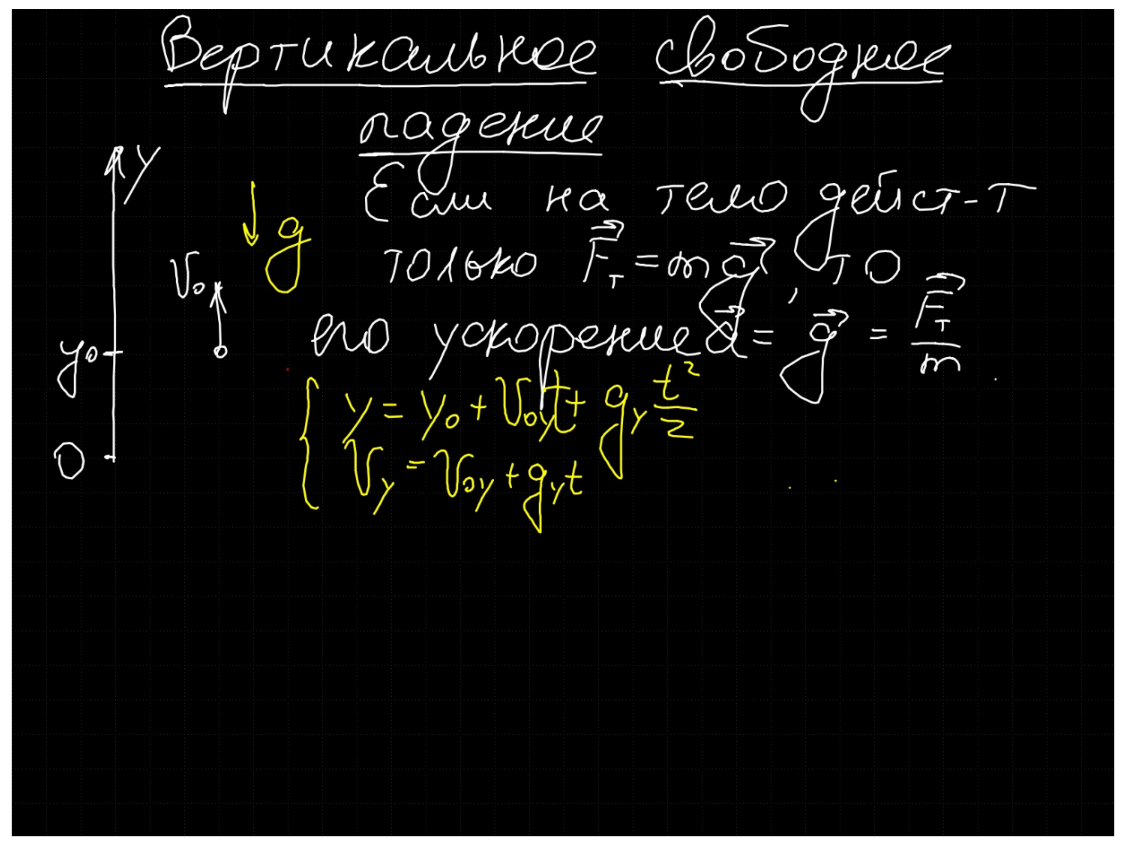 Вертикальное свободное
падение
y
Если на тело дейст-т
g
только F⃗т = mg⃗, то
V₀
его ускорение a⃗ = g⃗ = F⃗т/m
y₀
y = y₀ + V₀yt + gy t²/2
0
Vy = V₀y + gyt